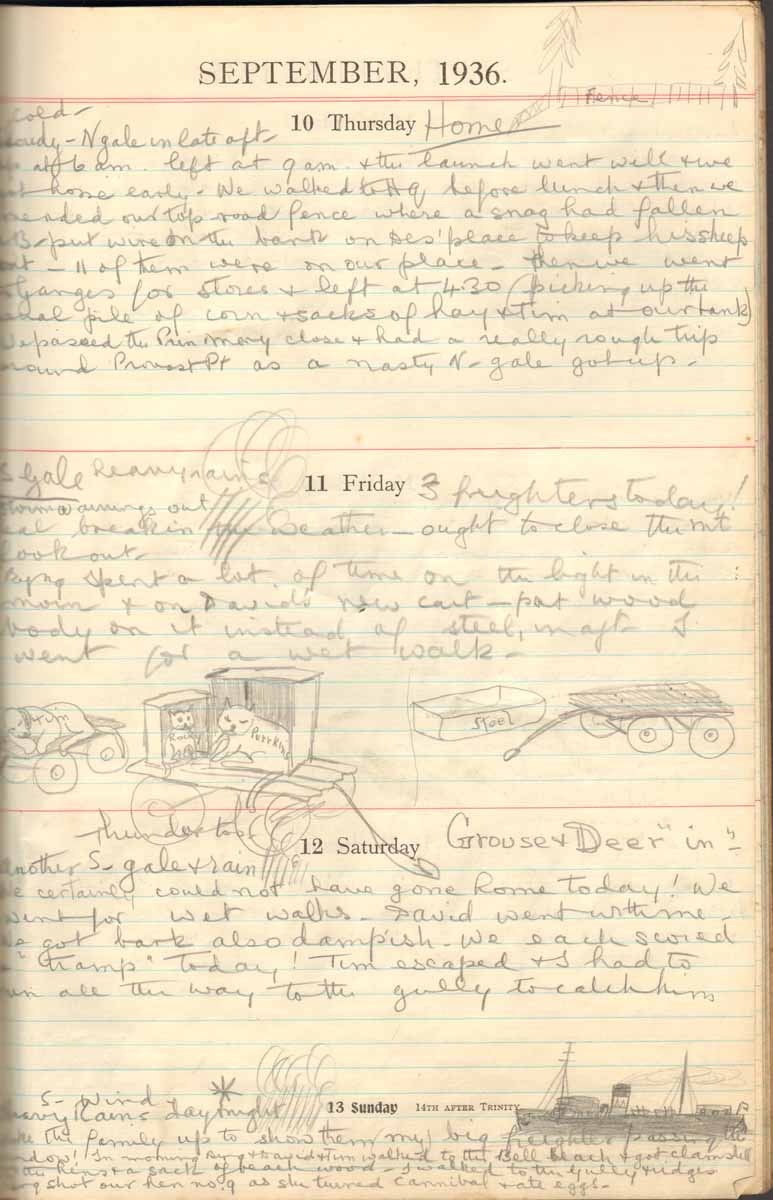 SEPTEMBER, 1936.
Fence
cold-
10 Thursday Home
cloudy - N gale in late aft-
at 6 am. left at 9 am. & the launch went well & we
home early - We walked to HQ before lunch & then we
mended our top road fence where a snag had fallen
B- put wire on the bank on Des' place to keep his sheep
out - 11 of them were on our place - then we went
Ganges for stores & left at 4.30 (picking up the
usual pile of corn & sacks of hay & Tim at our tank)
We passed the Prin Mary close & had a really rough trip
round Provost Pt as a nasty N- gale got up -
S Gale Heavy rains
11 Friday 3 frighters today!
storm warnings out
breakin the weather - ought to close the mt
look out -
spent a lot of time on the light in the
morn & on David's new cart - put wood
body on it instead of steel, in aft- I
went for a wet walk -
Tim
Rocky
Purrkins
Steel
Thunder too
12 Saturday Grouse & Deer "in" -
another S- gale & rain
We certainly could not have gone home today! We
went for wet walks - David went with me -
We got bark also dampish - We each scored
a "tramp" today! Tim escaped & I had to
run all the way to the gully to catch him
S- wind
heavy Rains day & night
13 Sunday 14TH AFTER TRINITY
the family up to show them my big freighter passing the
window! In morning & David & Tim walked to the Bell beach & got clamshell
the hens & a sack of beach wood - I walked to the Gully & ridges
shot our hen no. 9 as she turned Cannibal & ate eggs -